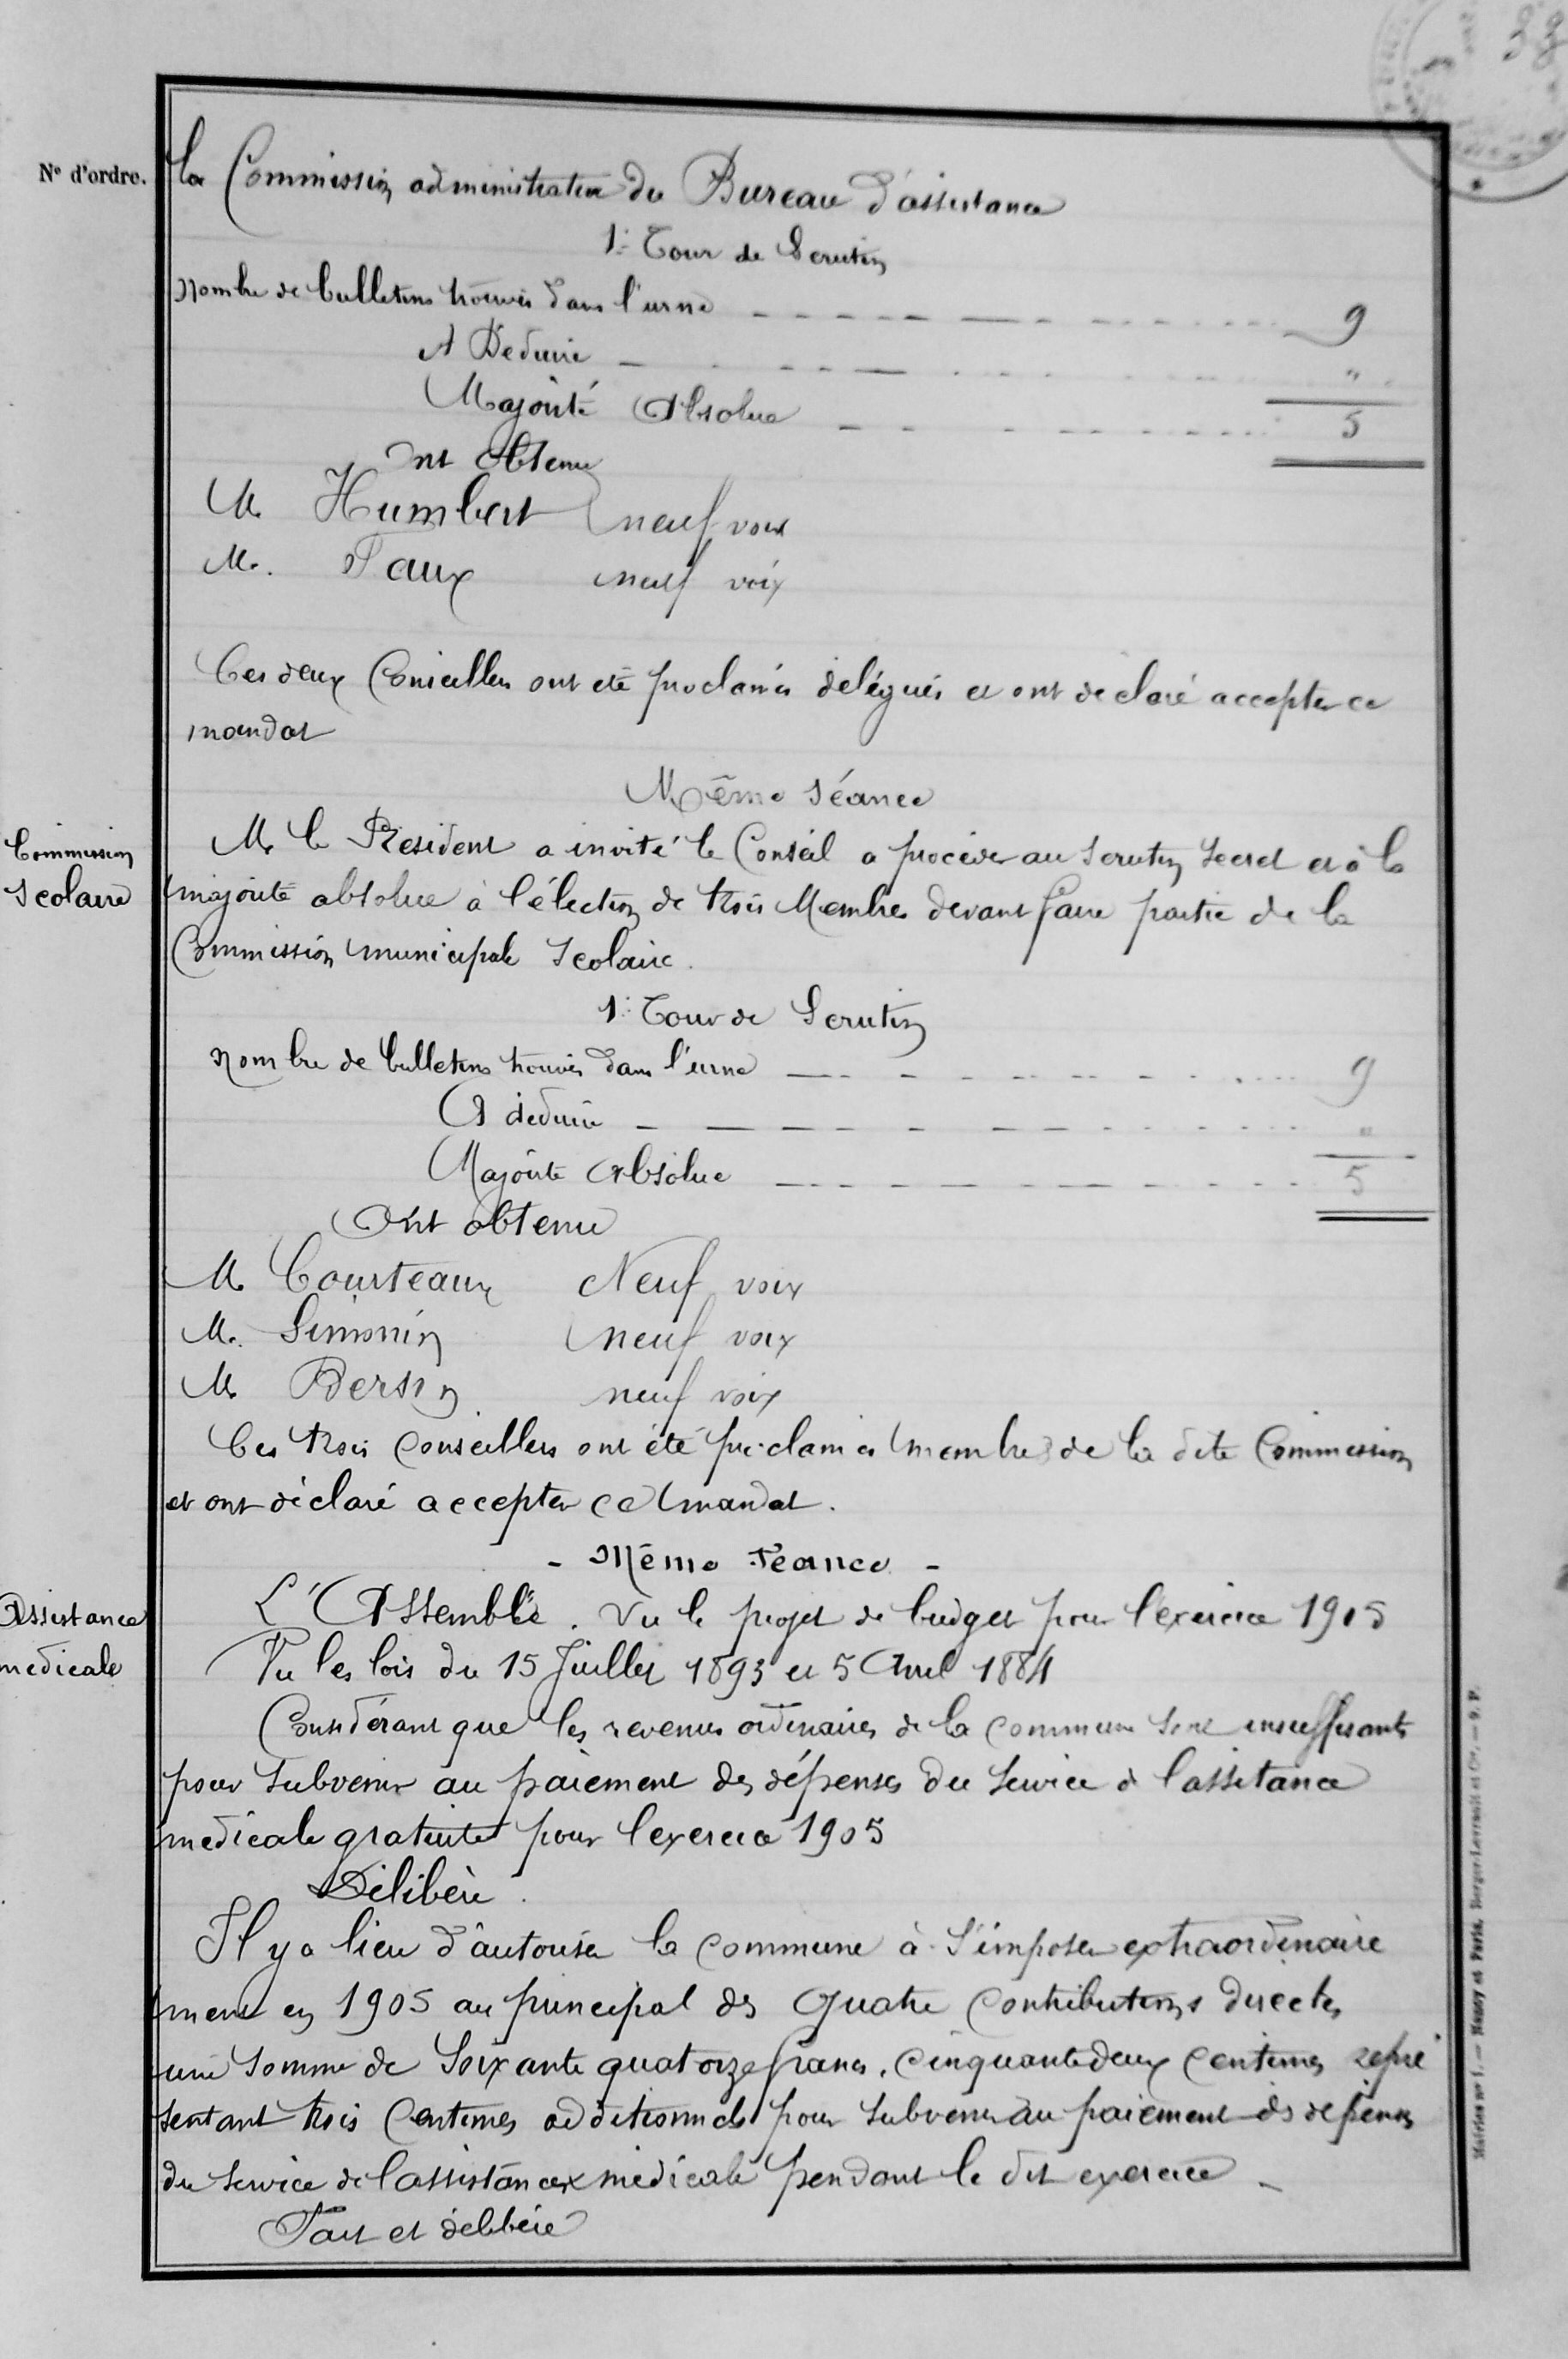 N° d'ordre.
la Commission administrative du Bureau d'assistance
1er Tour de Scrutin
Nombre de bulletins trouvés dans l'urne 9
A Déduire "
Majorité Absolue 5
Ont obtenu
M. Humbert neuf voix
M. Paux neuf voix
Ces deux Conseillers ont été proclamés délégués et ont déclaré accepter ce
mandat
Même Séance
Commission
Scolaire
M. le Président a invité le Conseil a procéder au scrutin secret et à la
majorité absolue à l'élection de trois Membres devant faire partie de la
Commission municipale Scolaire.
1er Tour de Scrutin
Nombre de bulletins trouvés dans l'urne 9
A déduire "
Majorité Absolue 5
Ont obtenu
M. Courteaux Neuf voix
M. Simonin neuf voix
M. Bersin neuf voix
Ces trois conseillers ont été proclamés membres de la dite Commission
et ont déclaré accepter ce mandat.
- Même Séance -
Assistance
medicale
L'Assemblée. Vu le projet de budget pour l'exercice 1905
Vu les lois du 15 Juillet 1893 et 5 Avril 1884
Considérant que les revenus ordinaires de la commune sont insuffisants
pour subvenir au paiement des dépenses du service de l'assitance
medicale gratuite pour l'exercice 1905
Délibère.
Il y a lieu d'autoriser la commune à s'imposer extraordinaire
ment en 1905 au principal des quatre contributions directes
une somme de soixante quatorze francs, cinquante deux centimes repré
sentant trois centimes additionnels pour subvenir au paiement des dépenses
du service de l'assistance médicale pendant le dit exercice -
Fait et délibéré
Mairies n° 1. — Nancy et Paris, Berger-Levrault et Cie. — 9. P.